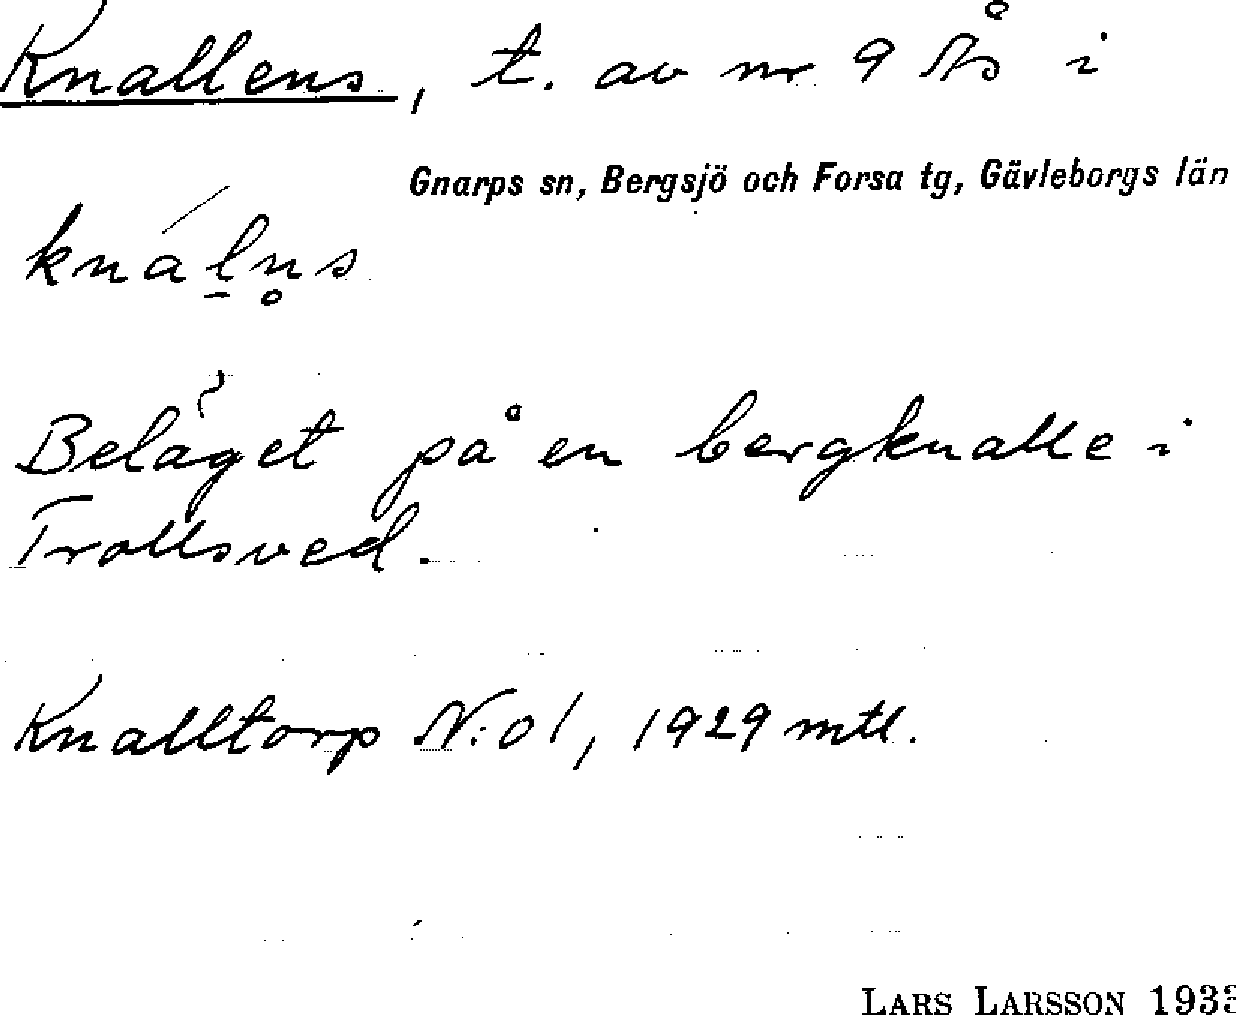 Knallens, t. av nr 9 Ås i
Gnarps sn, Bergsjö och Forsa tg, Gävleborgs län
knál̠n̥s
Beläget på en bergknalle i
Trollsved.
Knalltorp N:o 1, 1929 mtl.
LARS LARSSON 1933